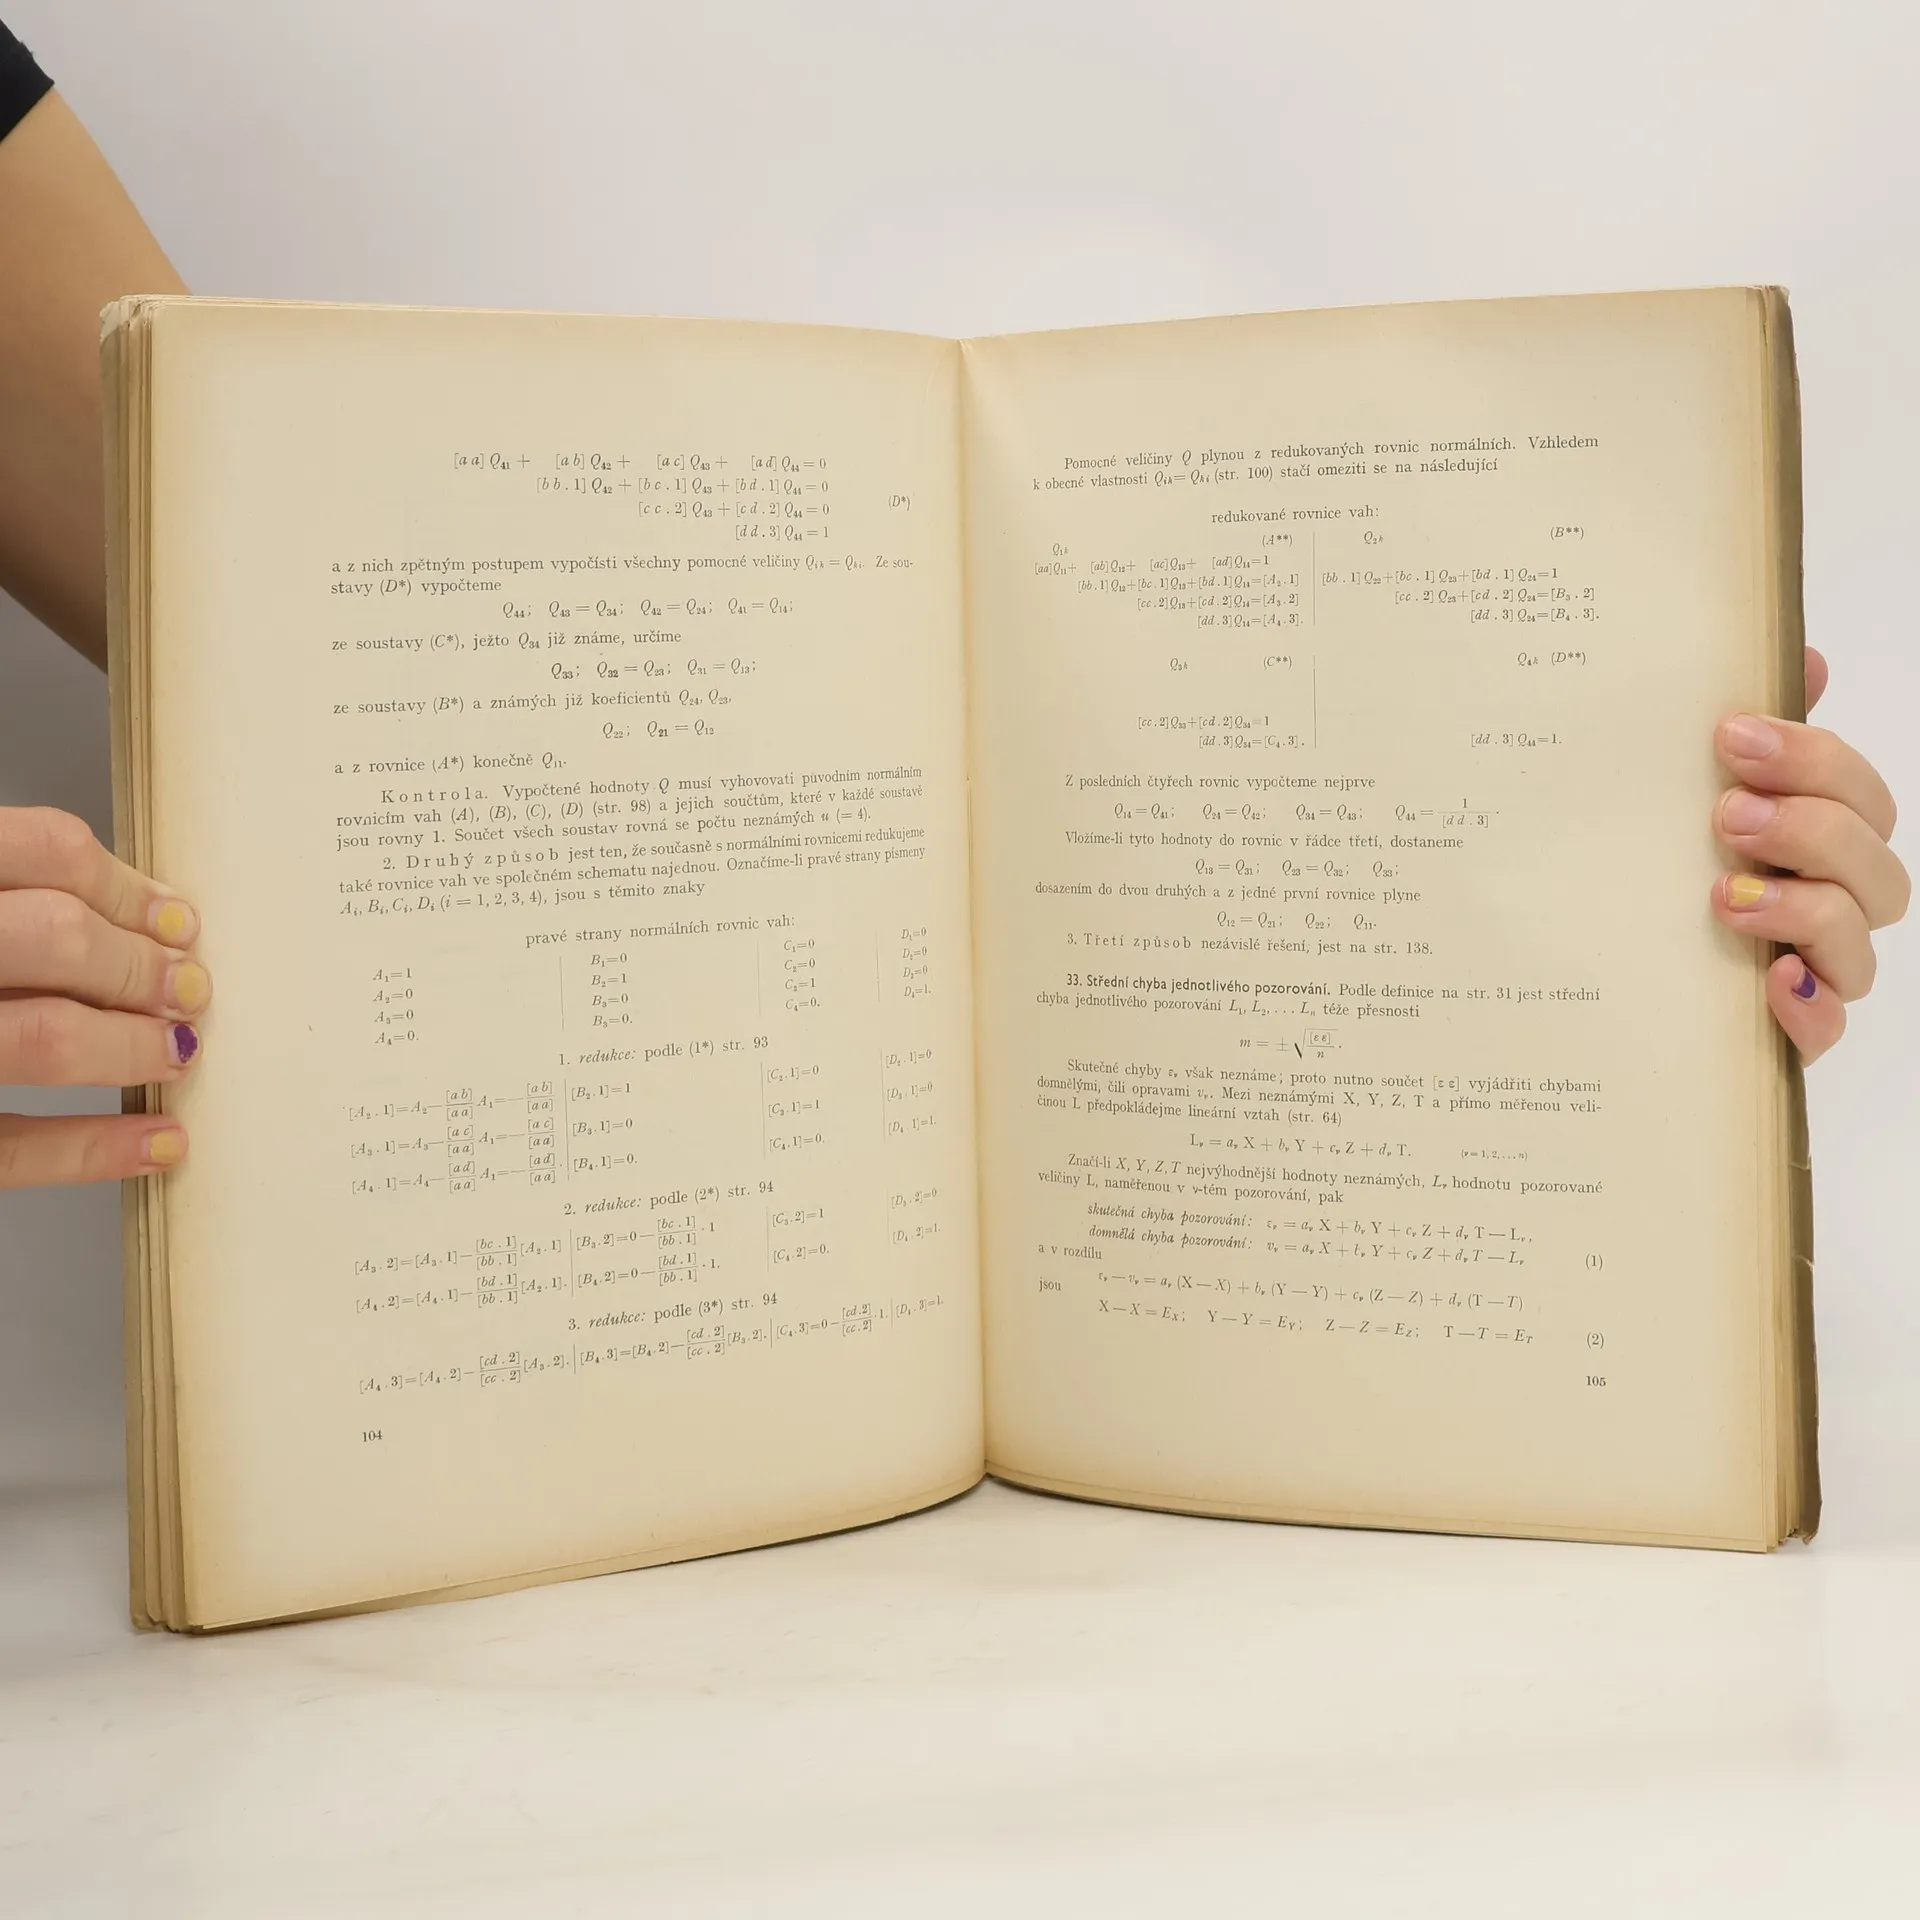 [a a] Q₄₁ + [a b] Q₄₂ + [a c] Q₄₃ + [a d] Q₄₄ = 0
[b b . 1] Q₄₂ + [b c . 1] Q₄₃ + [b d . 1] Q₄₄ = 0
[c c . 2] Q₄₃ + [c d . 2] Q₄₄ = 0 (D*)
[d d . 3] Q₄₄ = 1
a z nich zpětným postupem vypočísti všechny pomocné veličiny Qᵢₖ = Qₖᵢ. Ze sou-
stavy (D*) vypočteme
Q₄₄; Q₄₃ = Q₃₄; Q₄₂ = Q₂₄; Q₄₁ = Q₁₄;
ze soustavy (C*), ježto Q₃₄ již známe, určíme
Q₃₃; Q₃₂ = Q₂₃; Q₃₁ = Q₁₃;
ze soustavy (B*) a známých již koeficientů Q₂₄, Q₂₃,
Q₂₂; Q₂₁ = Q₁₂
a z rovnice (A*) konečně Q₁₁.
Kontrola. Vypočtené hodnoty Q musí vyhovovati původním normálním
rovnicím vah (A), (B), (C), (D) (str. 98) a jejich součtům, které v každé soustavě
jsou rovny 1. Součet všech soustav rovná se počtu neznámých u (= 4).
2. Druhý způsob jest ten, že současně s normálními rovnicemi redukujeme
také rovnice vah ve společném schematu najednou. Označíme-li pravé strany písmeny
Aᵢ, Bᵢ, Cᵢ, Dᵢ (i = 1, 2, 3, 4), jsou s těmito znaky
pravé strany normálních rovnic vah:
A₁=1 | B₁=0 | C₁=0 | D₁=0
A₂=0 | B₂=1 | C₂=0 | D₂=0
A₃=0 | B₃=0 | C₃=1 | D₃=0
A₄=0. | B₃=0. | C₄=0. | D₄=1.
1. redukce: podle (1*) str. 93
[A₂ . 1]=A₂—[ab]/[aa] A₁=—[ab]/[aa] | [B₂.1]=1 | [C₂.1]=0 | [D₂.1]=0
[A₃ . 1]=A₃—[ac]/[aa] A₁=—[ac]/[aa] | [B₃.1]=0 | [C₃.1]=1 | [D₃.1]=0
[A₄ . 1]=A₄—[ad]/[aa] A₁=—[ad]/[aa]. | [B₄.1]=0. | [C₄.1]=0. | [D₄.1]=1.
2. redukce: podle (2*) str. 94
[A₃ . 2]=[A₃ . 1]—[bc . 1]/[bb . 1] [A₂ . 1] | [B₃.2]=0—[bc . 1]/[bb . 1] . 1 | [C₃.2]=1 | [D₃.2]=0
[A₄ . 2]=[A₄ . 1]—[bd . 1]/[bb . 1] [A₂ . 1]. | [B₄.2]=0—[bd . 1]/[bb . 1] . 1. | [C₄.2]=0. | [D₄.2]=1.
3. redukce: podle (3*) str. 94
[A₄ . 3]=[A₄ . 2]—[cd . 2]/[cc . 2] [A₃ . 2]. | [B₄ . 3]=[B₄ . 2]—[cd . 2]/[cc . 2] [B₃ . 2]. | [C₄.3]=0—[cd.2]/[cc.2] . 1. | [D₄ . 3]=1.
104
Pomocné veličiny Q plynou z redukovaných rovnic normálních. Vzhledem
k obecné vlastnosti Qᵢₖ= Qₖᵢ (str. 100) stačí omeziti se na následující
redukované rovnice vah:
Q₁ₖ (A**) | Q₂ₖ (B**)
[aa]Q₁₁+ [ab]Q₁₂+ [ac]Q₁₃+ [ad]Q₁₄=1
[bb.1]Q₁₂+[bc.1]Q₁₃+[bd.1]Q₁₄=[A₂.1] | [bb . 1] Q₂₂+[bc . 1] Q₂₃+[bd . 1] Q₂₄=1
[cc.2]Q₁₃+[cd.2]Q₁₄=[A₃.2] | [cc . 2] Q₂₃+[cd . 2] Q₂₄=[B₃ . 2]
[dd.3]Q₁₄=[A₄.3]. | [dd . 3] Q₂₄=[B₄ . 3].
Q₃ₖ (C**) | Q₄ₖ (D**)
[cc.2]Q₃₃+[cd.2]Q₃₄=1
[dd.3]Q₃₄=[C₄.3]. | [dd . 3] Q₄₄=1.
Z posledních čtyřech rovnic vypočteme nejprve
Q₁₄ = Q₄₁; Q₂₄ = Q₄₂; Q₃₄ = Q₄₃; Q₄₄ = 1/[d d . 3].
Vložíme-li tyto hodnoty do rovnic v řádce třetí, dostaneme
Q₁₃ = Q₃₁; Q₂₃ = Q₃₂; Q₃₃;
dosazením do dvou druhých a z jedné první rovnice plyne
Q₁₂ = Q₂₁; Q₂₂; Q₁₁.
3. Třetí způsob nezávislé řešení, jest na str. 138.
33. Střední chyba jednotlivého pozorování. Podle definice na str. 31 jest střední
chyba jednotlivého pozorování L₁, L₂, . . . Lₙ téže přesnosti
m = ± √([ε ε]/n) .
Skutečné chyby εᵥ však neznáme; proto nutno součet [ε ε] vyjádřiti chybami
domnělými, čili opravami vᵥ. Mezi neznámými X, Y, Z, T a přímo měřenou veli-
činou L předpokládejme lineární vztah (str. 64)
Lᵥ = aᵥ X + bᵥ Y + cᵥ Z + dᵥ T. (ν = 1, 2, . . . n)
Značí-li X, Y, Z, T nejvýhodnější hodnoty neznámých, Lᵥ hodnotu pozorované
veličiny L, naměřenou v ν-tém pozorování, pak
skutečná chyba pozorování: εᵥ = aᵥ X + bᵥ Y + cᵥ Z + dᵥ T — Lᵥ,
domnělá chyba pozorování: vᵥ = aᵥ X + bᵥ Y + cᵥ Z + dᵥ T — Lᵥ (1)
a v rozdílu
εᵥ — vᵥ = aᵥ (X — X) + bᵥ (Y — Y) + cᵥ (Z — Z) + dᵥ (T — T)
jsou
X — X = E_X; Y — Y = E_Y; Z — Z = E_Z; T — T = E_T (2)
105